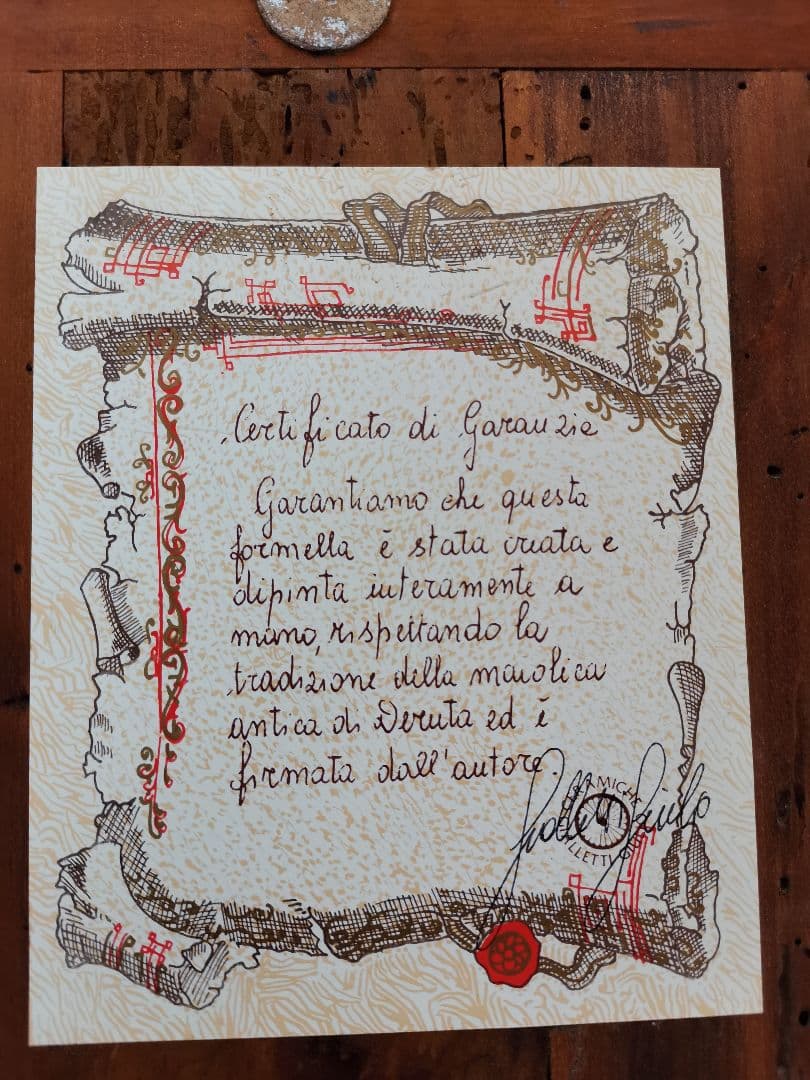 Certificato di Garanzia
Garantiamo che questa
formella è stata creata e
dipinta interamente a
mano, rispettando la
tradizione della maiolica
antica di Deruta ed è
firmata dall'autore.
CERAMICHE